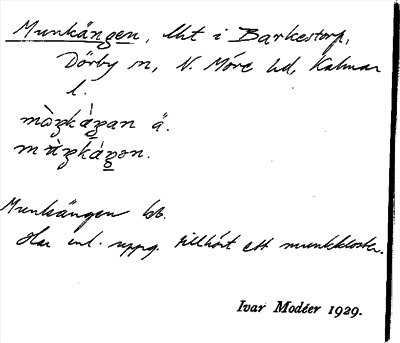 Munkängen, lht i Barkestorp,
Dörby sn, N. Möre hd, Kalmar
l.
ä.
Munkängen bb.
Har enl. uppg. tillhört ett munkkloster.
Ivar Modéer 1929.